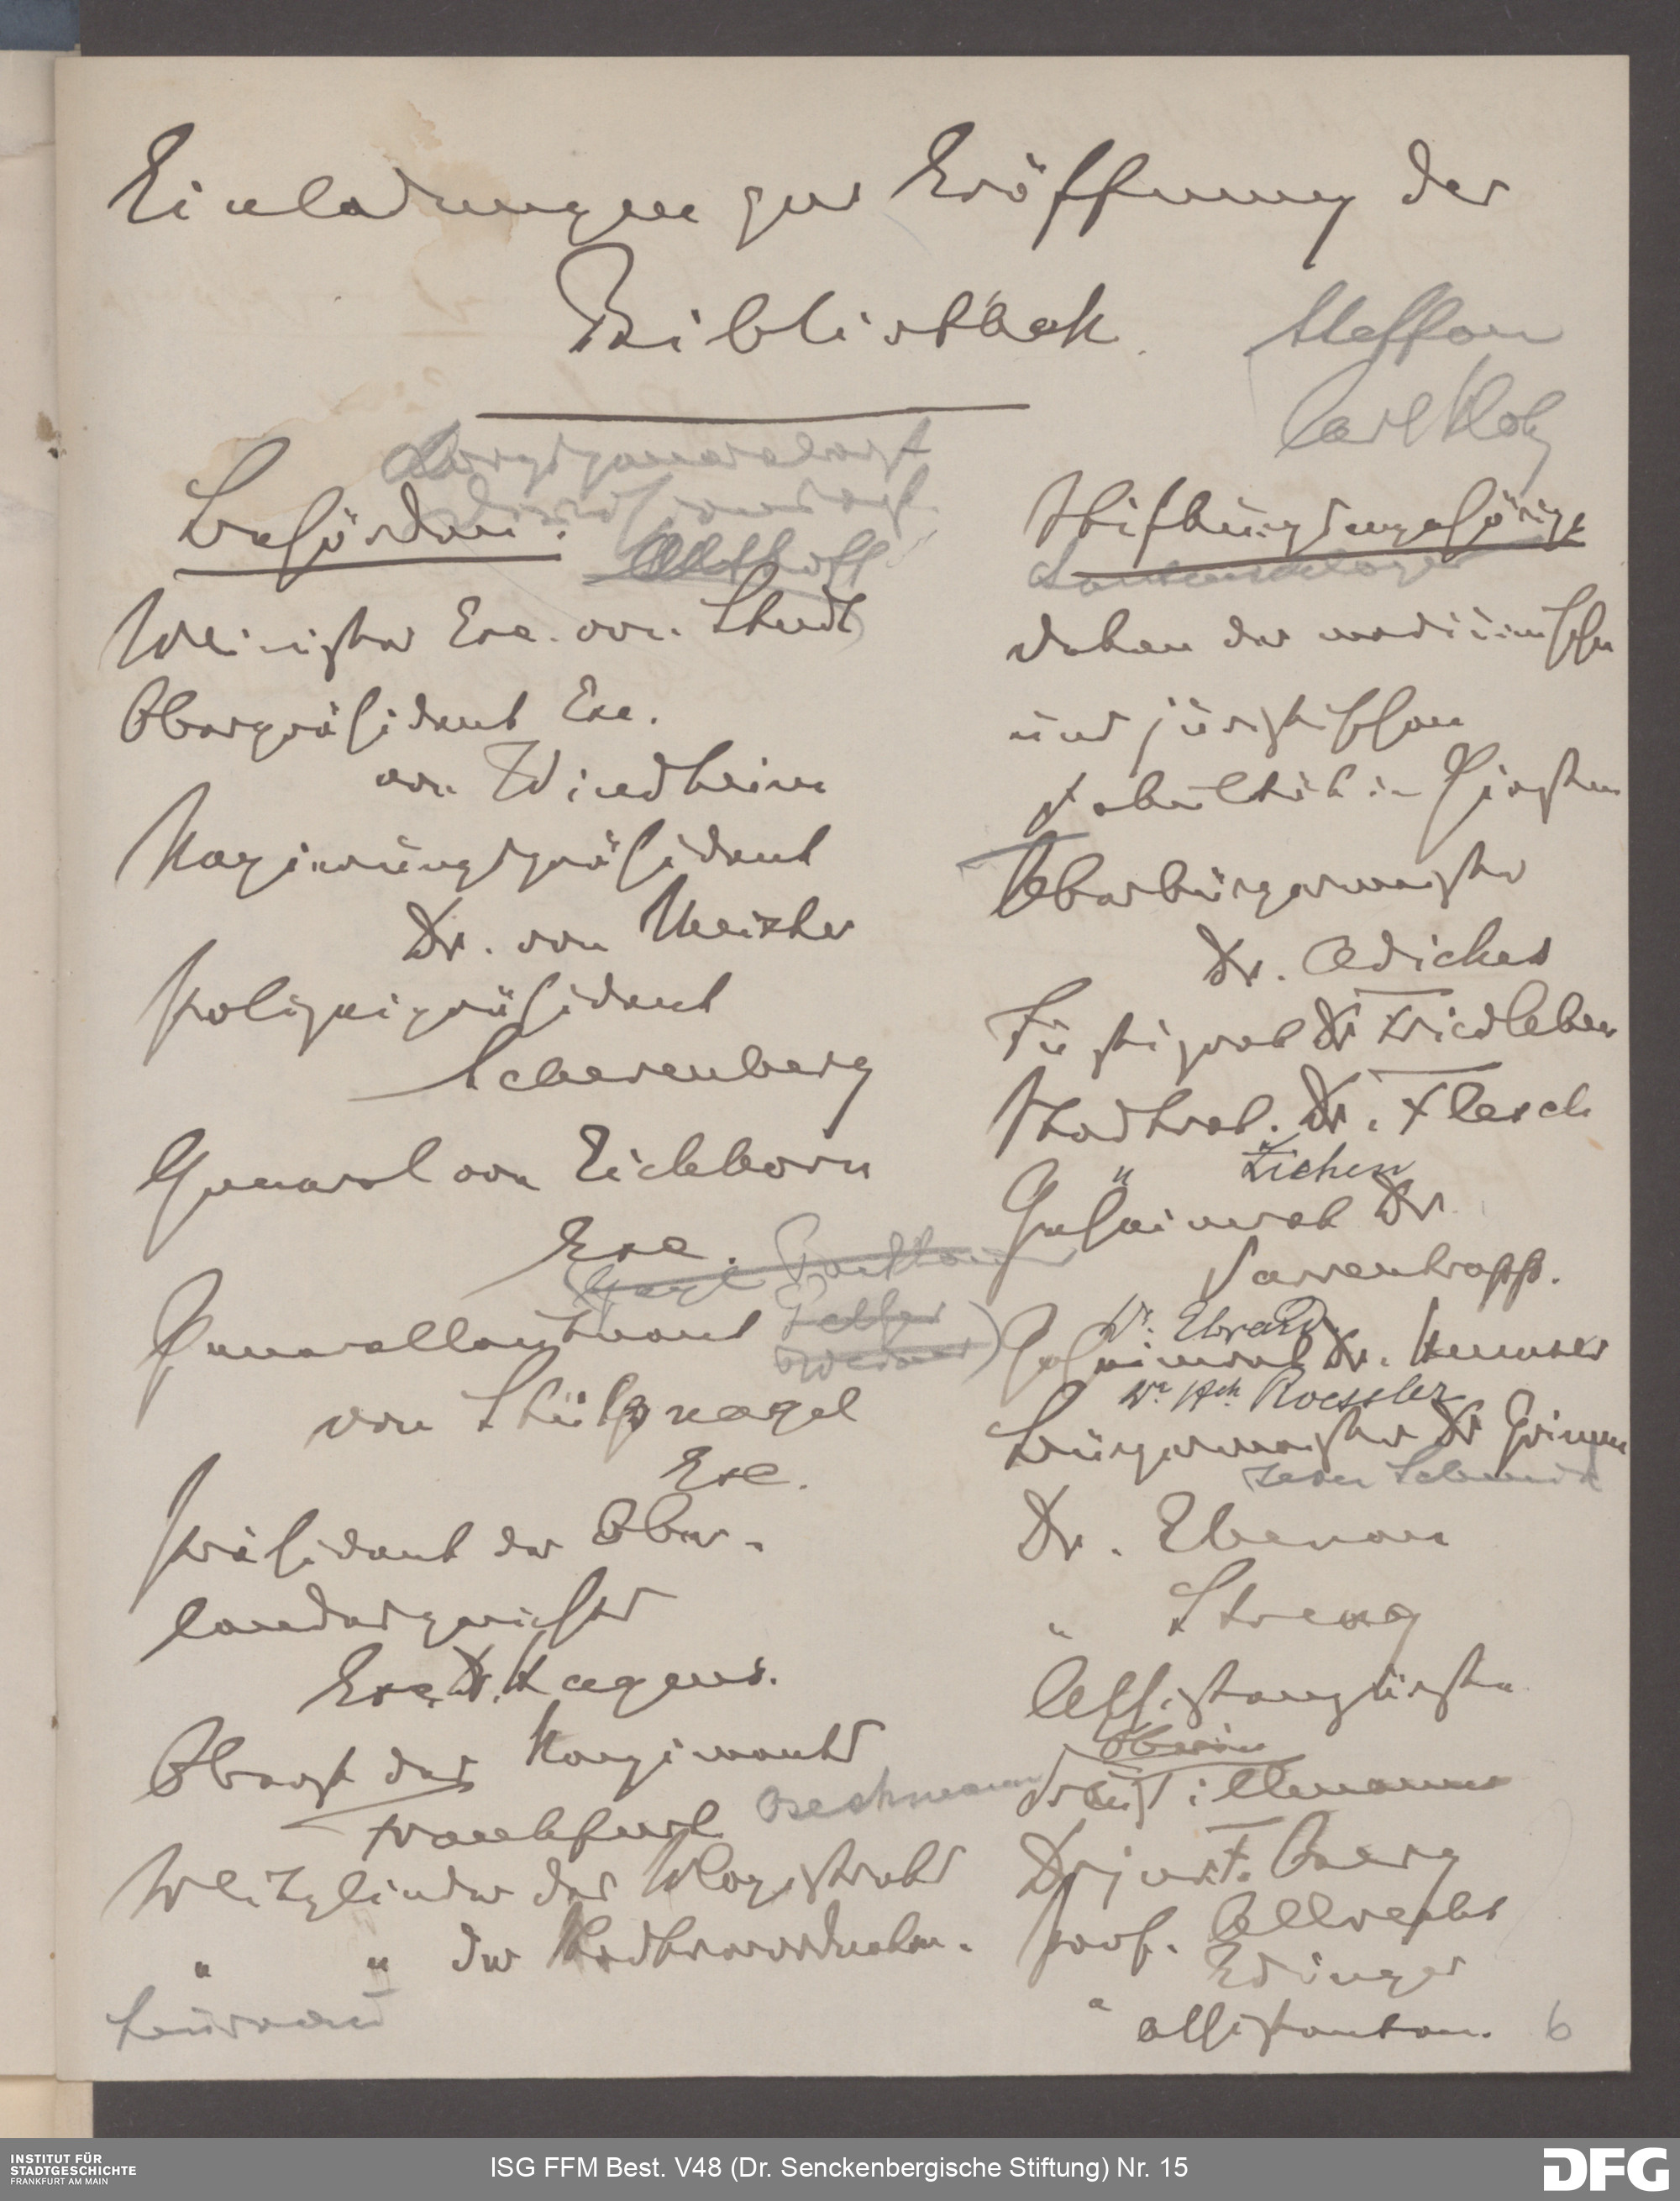 Einladungen zur Eröffnung der
Bibliothek.
Steffan
Carl Kotz
Behörden:
Althoff
Minister Exc. von Studt
Oberpräsident Exc.
von Windheim
Regierungspräsident
Dr. von Meister
Polizeipräsident
Scherenberg
General von Eichhorn
Exc.
Generalleutnant
von Stülpnagel
Exc.
Präsident des Ober-
landesgerichts
Exc. Dr. Hagens.
Oberst des Regiments
Frankfurt
Mitglieder des Magistrats
" " der Stadtverordneten.
Stiftungsangehörige
Lautenschläger
Dekan der medizinischen
und juristischen
Fakultät in Giessen
Oberbürgermeister
Dr. Adickes
Justizrat Dr Friedleben
Stadtrat. Dr. Flesch
" Ziehen
Geheimrat Dr
Varrentrapp.
Dr. Ebrard.
Geheimrat Dr. Humser
Dr. Hch. Roessler
Bürgermeister Dr Grimm
Dr. Ebenau
" Streng
Assistenzärzte
Oberin
Tillmanns
Dr jur. F. Berg
Prof. Albrecht
Edinger
" Assistenten.
6
INSTITUT FÜR
STADTGESCHICHTE
FRANKFURT AM MAIN
ISG FFM Best. V48 (Dr. Senckenbergische Stiftung) Nr. 15
DFG